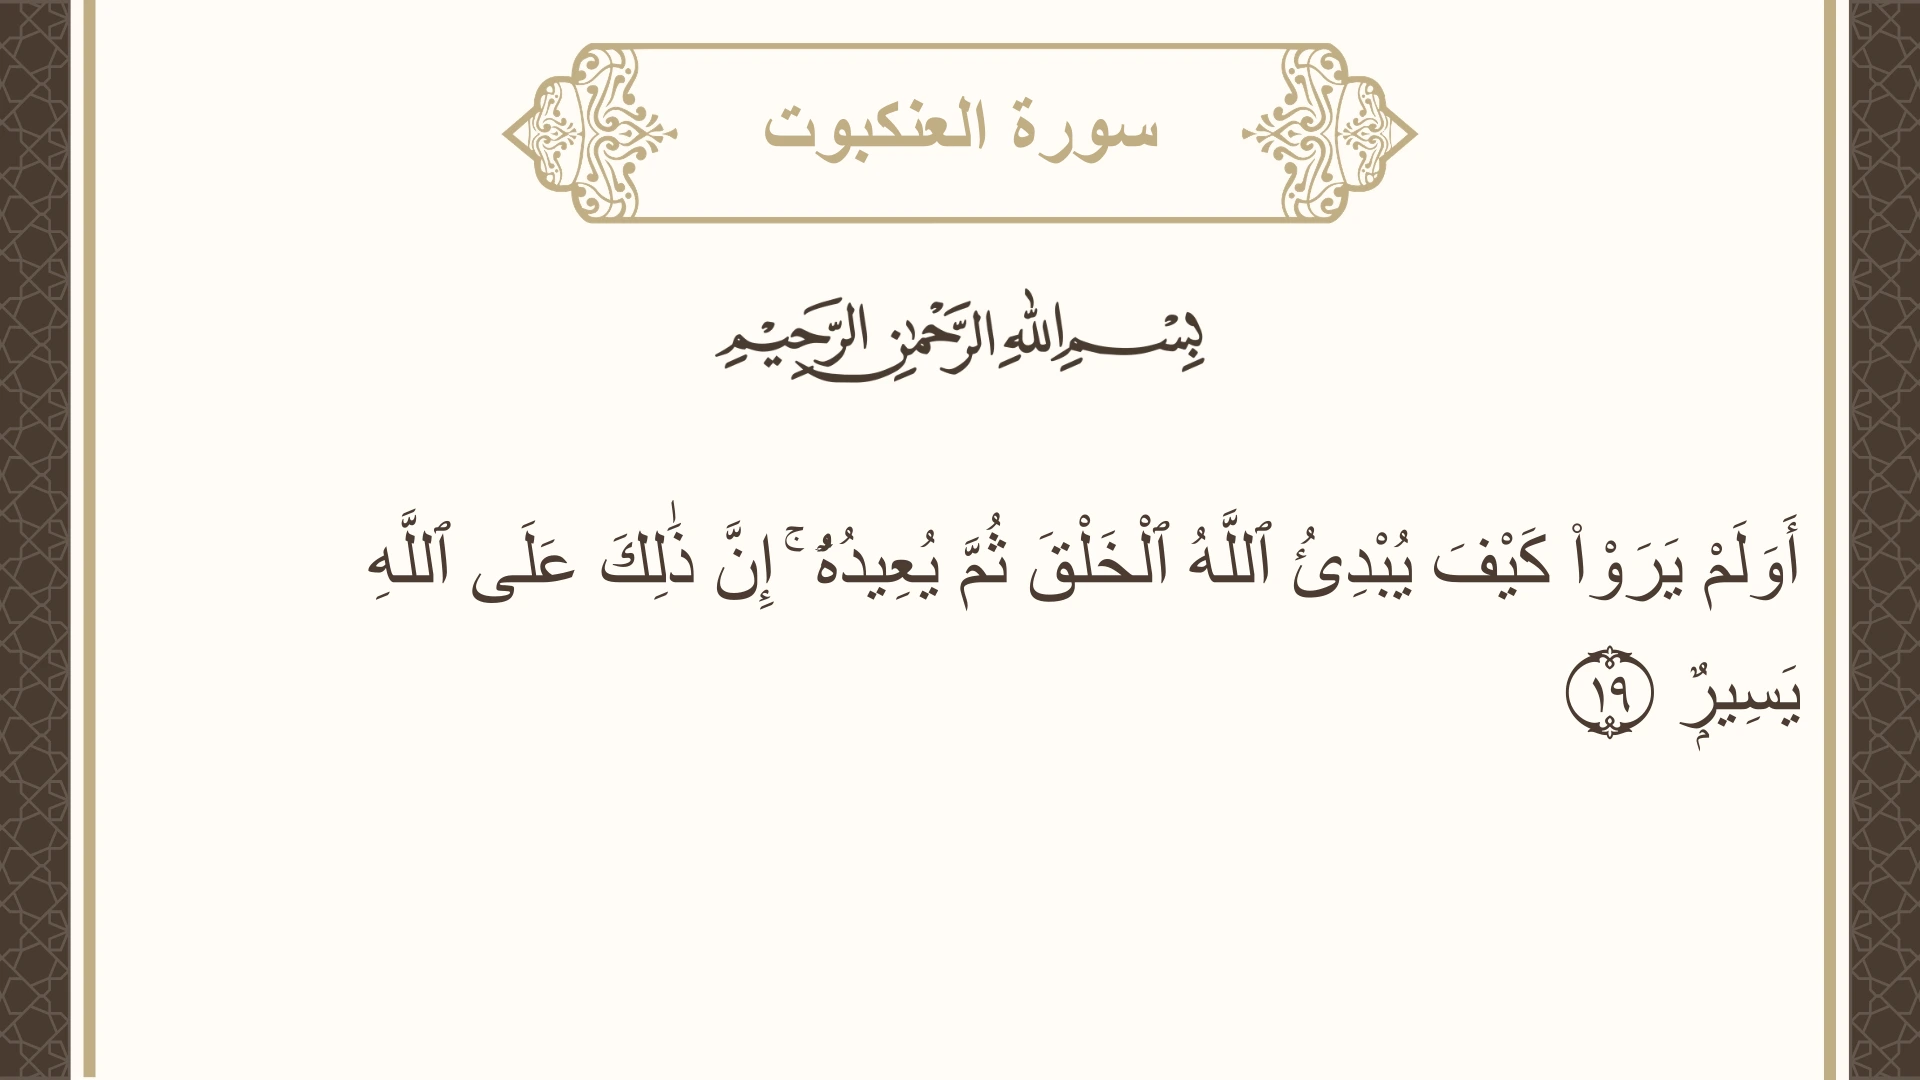 سورة العنكبوت
بِسْمِ اللهِ الرَّحْمٰنِ الرَّحِيْمِ
أَوَلَمْ يَرَوْا۟ كَيْفَ يُبْدِئُ ٱللَّهُ ٱلْخَلْقَ ثُمَّ يُعِيدُهُۥٓ ۚ إِنَّ ذَٰلِكَ عَلَى ٱللَّهِ
يَسِيرٌۭ ١٩